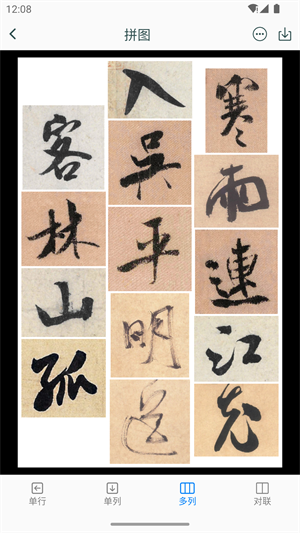 12:08
拼图
寒雨連江夜
入吳平明送
客林山孤
单行 单列 多列 对联